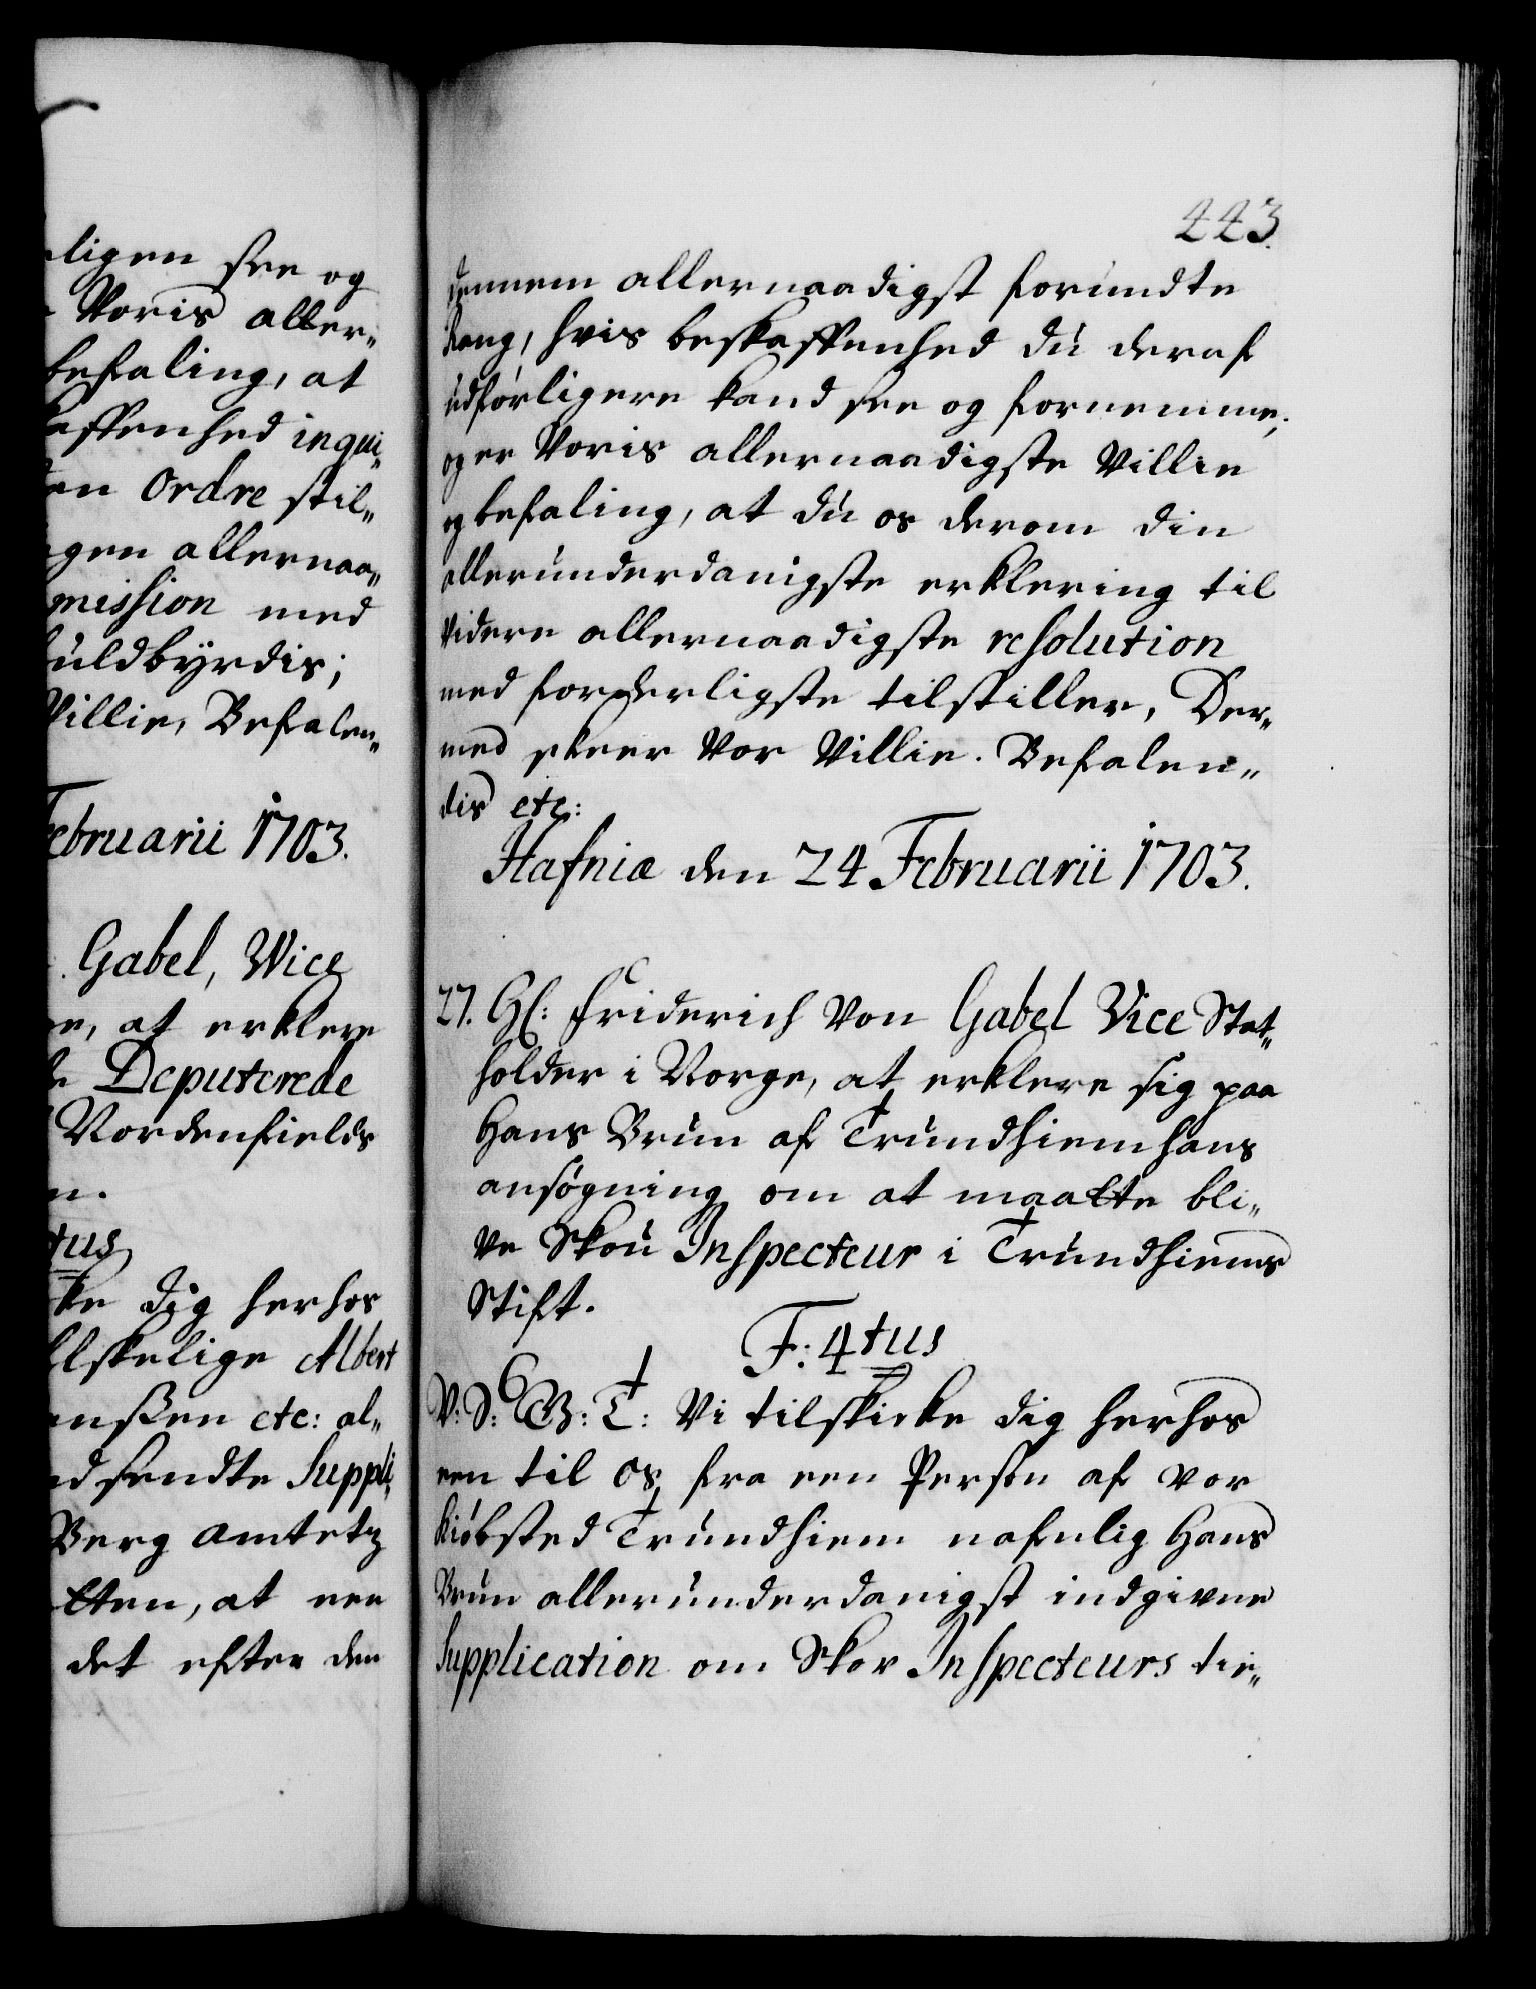 ligen see og
Voris aller„
befaling, at
affenhed inqui„
en Ordre stil„
gen allernaa„
mission med
fuldbyrdis;
Villie, Befalen„
Februarii 1703.
Gabel, Vice
at erklere
Deputerede
Nordenfields
tus
dig herhos
Elskelige Albert
enßen etc: al„
ndsendte Suppli„
Berg Amtetz
etten, at een
det efter den
443.
dennem allernaadigst forundte
Rang, hvis beskaffenhed du deraf
udførligere kand see og fornemme;
og er Voris allernaadigste Villie
og befaling, at du os derom din
allerunderdanigste erklering til
videre allernaadigste resolution
med forderligste tilstiller, Der„
med skeer Vor Villie. Befalen„
dis etc:
Hafniæ den 24 Februarii 1703.
27. Hl: Friderich Von Gabel Vice Stat„
holder i Norge, at erklere sig paa
Hans Brun af Trundhiem hans
ansøgning om at maatte bli„
ve Skou Inspecteur i Trundhiems
Stift.
F: 4tus
V: S: G: B: T: Vi tilskicke dig herhos
een til os fra een Person af vor
Kiøbsted Trundhiem nafnlig Hans
Brun allerunderdanigst indgivne
Supplication om Skov Inspecteurs tie„